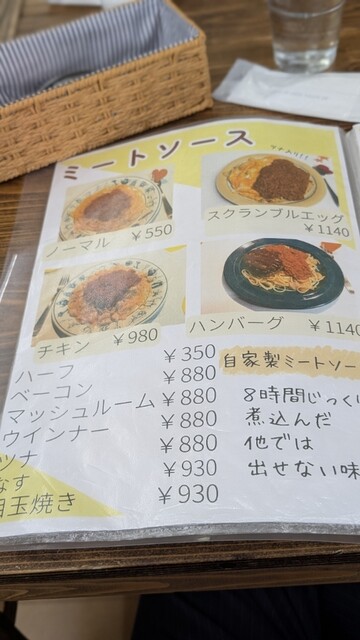 ミートソース
ノーマル ￥550
スクランブルエッグ
￥1140
チキン ￥980
ハンバーグ ￥1140
ハーフ ￥350
ベーコン ￥880
マッシュルーム ￥880
ウインナー ￥880
ツナ ￥880
なす ￥930
目玉焼き ￥930
自家製ミートソー
8時間じっくり
煮込んだ
他では
出せない味